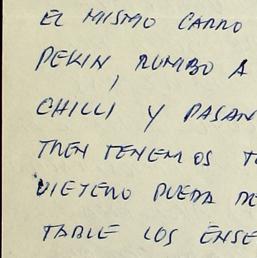 EL MISMO CARRO
PEKIN, RUMBO A
CHILLI Y PASAN
TREN TENEMOS T
PUEDA DE
TABLE LOS ENSE